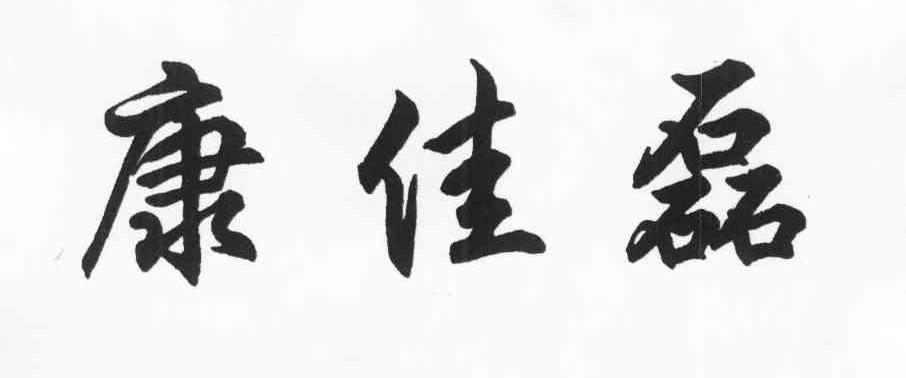 康佳磊